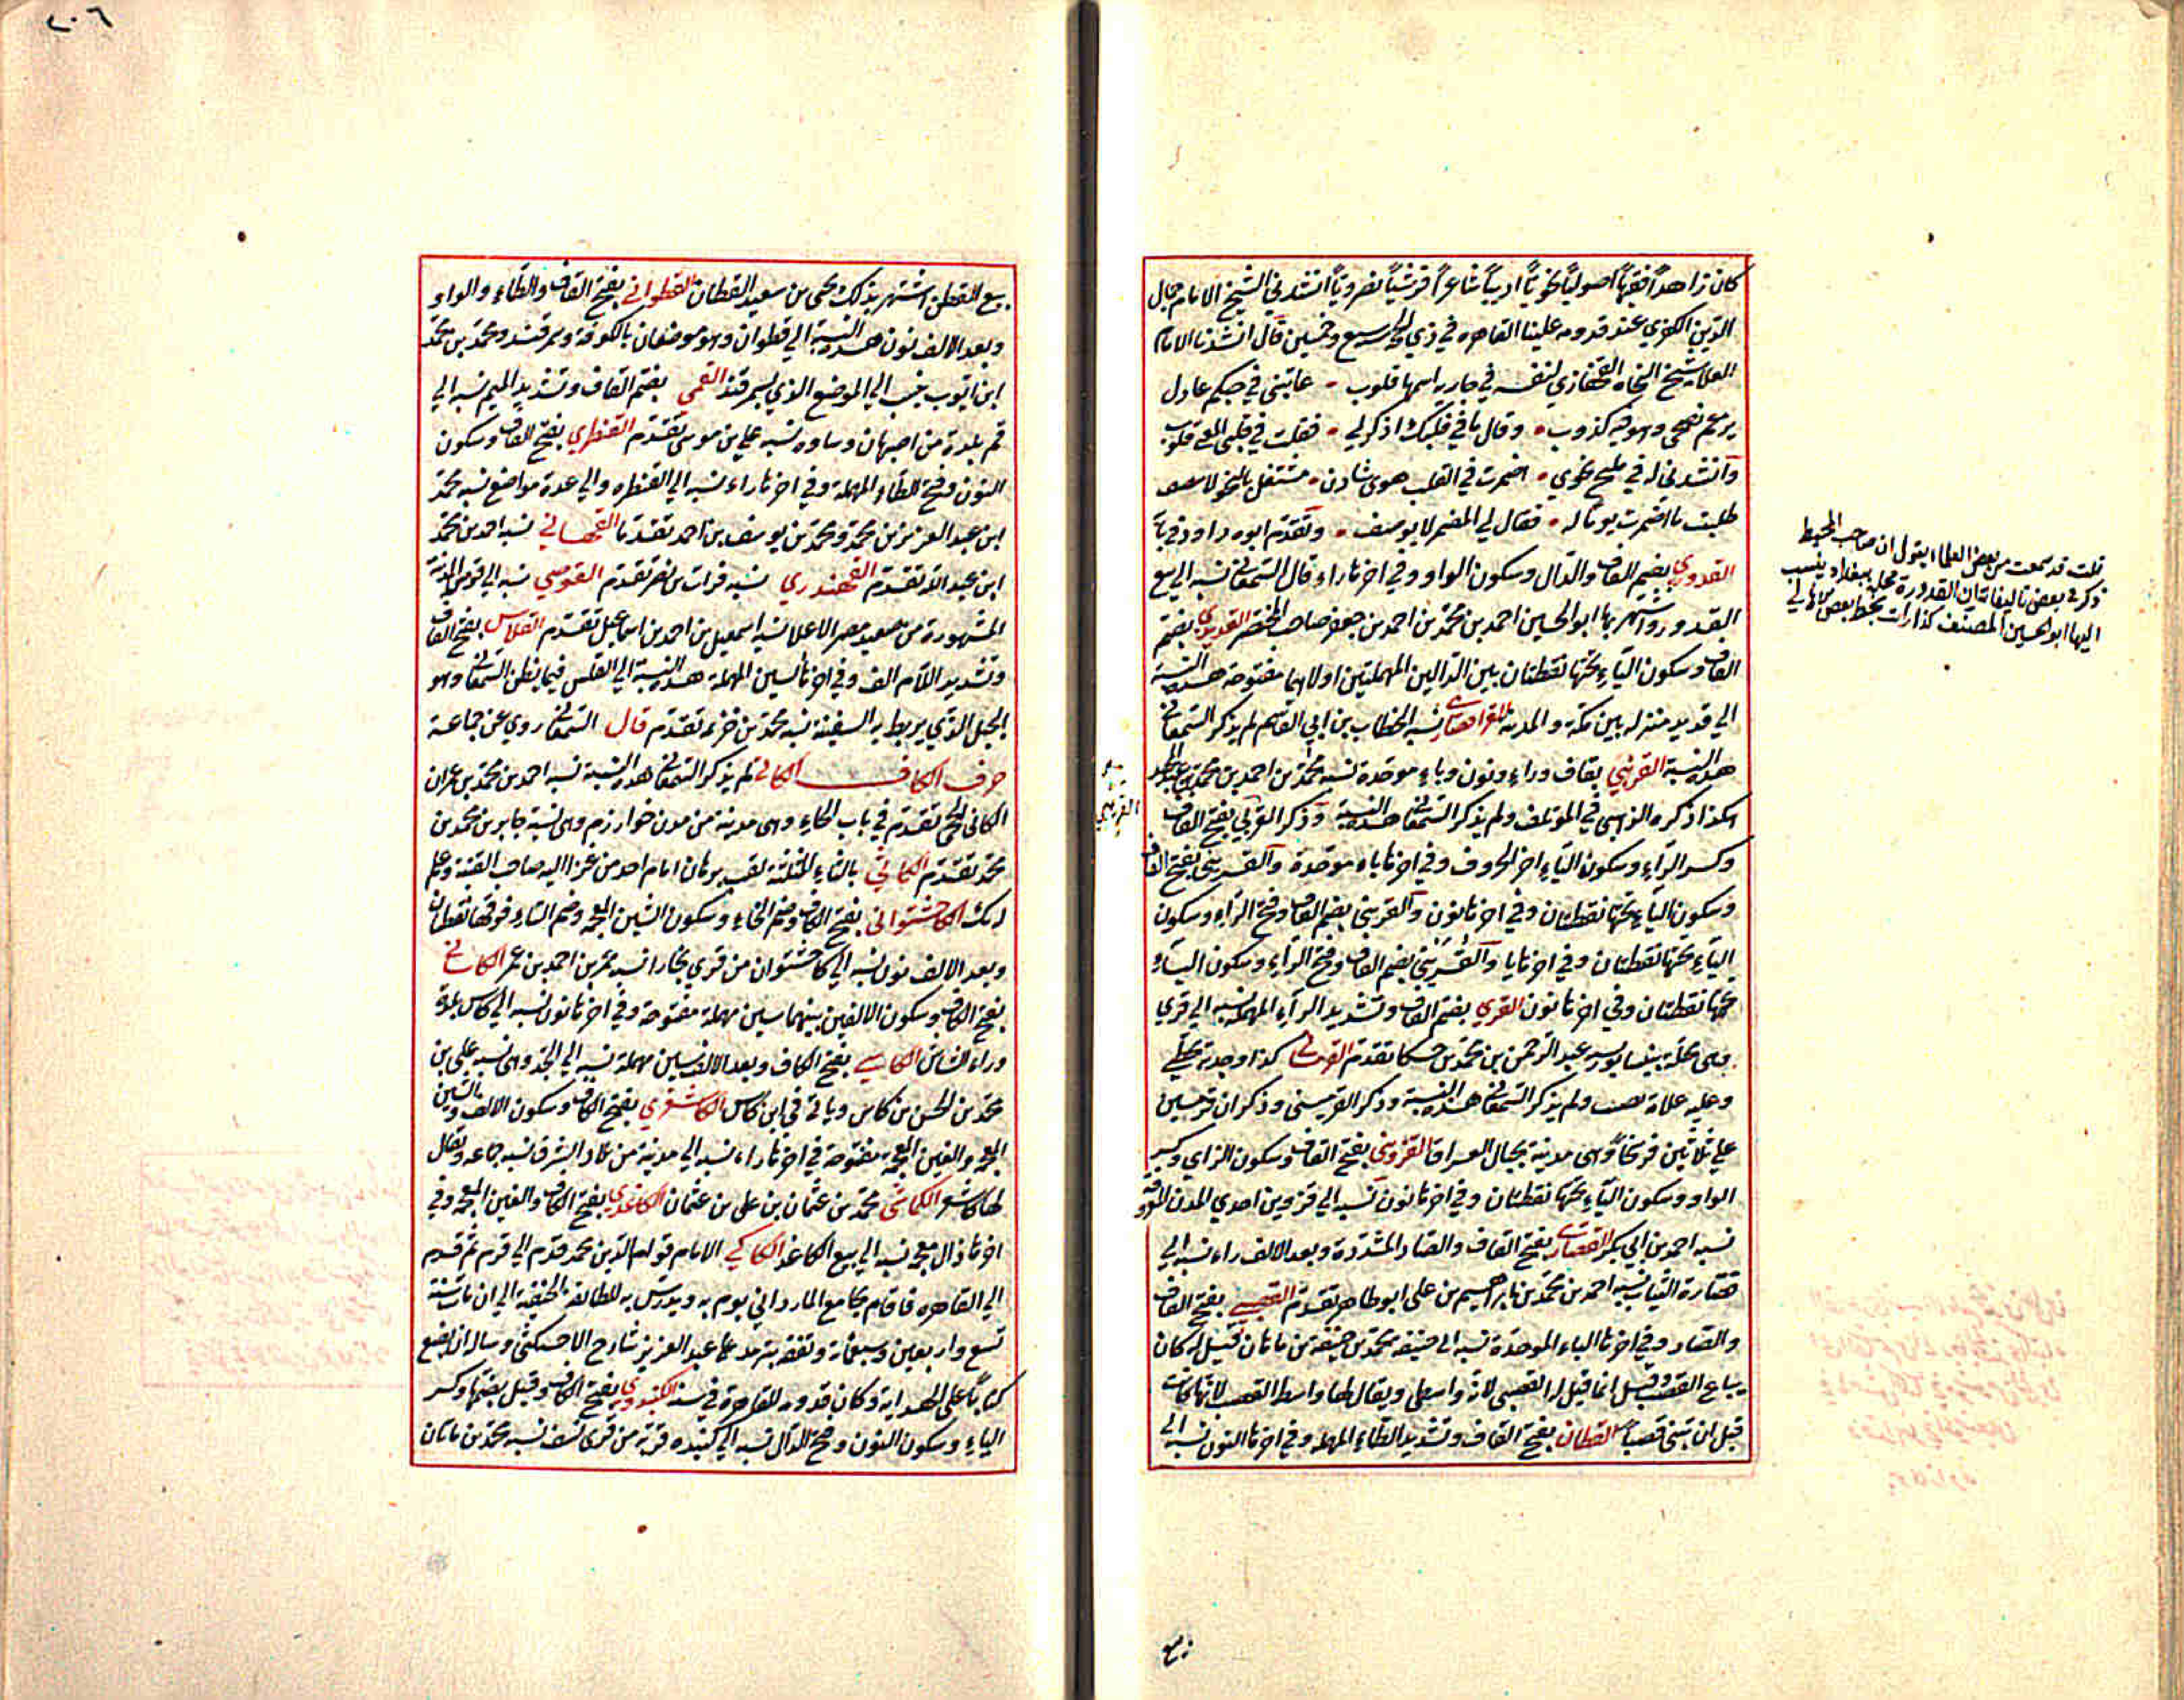 كان زاهداً فقيهاً اصولياً نحوياً اديباً شاعراً قرشياً نصروياً انشدني الشيخ الامام جمال
الدين عند قدومه علينا القاهره في ذي الحجة سبع وخمسين قال انشدنا الامام
العلامة شيخ النحاه القحفازي لنفسه في جاريه اسمها قلوب عاتبني في حبكم عاذل
يزعم نصحي وهو فيه كذوب وقال ما في قلبك اذكره لي فقلت في قلبي المعنى قلوب
وانشدني له في مليح نحوي اضمرت في القلب هوى شادن مشتغل بالنحو لا ينصف
طلبت ما اضمرت يوما له فقال لي المضمر لا يوصف وتقدم ابوه داود في بابه
القدوري بضم القاف والدال وسكون الواو وفي اخرها راء قال السمعاني نسبه الي بيع
القدور واشتهر بها ابو الحسين احمد بن محمد بن احمد بن جعفر صاحب المختصر القديدي بضم
القاف وسكون الياء تحتها نقطتان بين الدالين المهملتين اولاهما مفتوحة هذه النسبة
الي قديد منزله بين مكة والمدينة نسبه الخطاب بن ابي القاسم لم يذكر السمعاني
هذه النسبة القرنبي بقاف وراء ونون وباء موحدة نسبه محمد بن احمد بن محمد بن عبد المجيد
هكذا ذكره الذهبي في المؤتلف ولم يذكر السمعاني هذه النسبة وذكر القريبي بفتح القاف
وكسر الراء وسكون الياء اخر الحروف وفي اخرها باء موحدة والقريني بفتح القاف
وسكون الياء تحتها نقطتان وفي اخرها نون والقريبي بضم القاف وفتح الراء وسكون
الياء تحتها نقطتان وفي اخرها با والقريني بضم القاف وفتح الراء وسكون الياء
تحتها نقطتان وفي اخرها نون القري بضم القاف وتشديد الراء المهملة نسبه الي قري
وهي محلة بنيسابور نسبه عبد الرحمن بن محمد بن حسكا تقدم كذا وجدته بخطي
وعليه علامة نصب ولم يذكر السمعاني هذه النسبة وذكر القرميسني وذكر ان قرميسين
علي ثلاثين فرسخاً وهي مدينة بجبال العراق القزويني بفتح القاف وسكون الزاي وكسر
الواو وسكون الياء تحتها نقطتان وفي اخرها نون نسبه الي قزوين احدي المدن المعروفة
نسبه احمد بن ابي بكر القصار بفتح القاف والصاد المشددة وبعد الالف راء نسبه الي
قصارة الثياب نسبه احمد بن محمد بن ابراهيم بن علي ابو طاهر تقدم القصبي بفتح القاف
والصاد وفي اخرها الباء الموحدة نسبه الي محمد بن حنيفة بن ماهان قيل له كان
يباع القصب وقيل انما قيل له القصبي لانه واسطي ويقال لها واسط القصب لانها كانت
قبل ان تبنى قصباً القطان بفتح القاف وتشديد الطاء المهملة وفي اخرها النون نسبه الي
قلت قد سمعت من بعض العلماء يقول ان صاحب المحيط
ذكر في بعض تاليفاته ان القدورة محلة ببغداد ينسب
اليها ابو الحسين المصنف كذا رأيت بخط بعض
القرنبي
بيع
٢٠٦
بيع القطن اشتهر بذلك يحيى بن سعيد القطان القطواني بفتح القاف والطاء والواو
وبعد الالف نون هذه النسبة الي قطوان وهو موضعان بالكوفة وسمرقند ومحمد بن محمد
ابن ايوب نسب الي الموضع الذي بسمرقند القمي بضم القاف وتشديد الميم نسبه الي
قم بلدة من اصبهان وساوه نسبه علي بن موسى تقدم القنطري بفتح القاف وسكون
النون وفتح الطاء المهملة وفي اخرها راء نسبه الي القنطره والي عدة مواضع نسبه محمد
ابن عبد العزيز بن محمد ومحمد بن يوسف بن احمد تقدما نسبه احمد بن محمد
ابن عبد الله تقدم القهندزي نسبه فرات بن نصر تقدم القوصي نسبه الي قوص المدينة
المشهورة من صعيد مصر الاعلا نسبه اسمعيل بن احمد بن اسماعيل تقدم القلاس بفتح القاف
وتشديد اللام الف وفي اخرها السين المهملة هذه النسبة الي القلس فيما يظن السمعاني وهو
الحبل الذي يربط به السفينة نسبه محمد بن خزيمة تقدم قال السمعاني روي عن جماعة
حرف الكاف لم يذكر السمعاني هذه النسبة نسبه احمد بن محمد بن عمران
الكاثي تقدم في باب الحاء وهي مدينة من مدن خوارزم وهي نسبة جابر بن محمد بن
محمد تقدم الكاثي بالثاء المثلثة لقب برهان امام احد من عزا اليه صاحب القنية وعلم
له بك الكاخشتواني بفتح الكاف وضم الخاء وسكون الشين المعجمة وضم التاء فوقها نقطتان
وبعد الالف نون نسبه الي كاخشتوان من قري بخارا نسبه عمر بن احمد بن عمر الكاساني
بفتح الكاف وسكون الالفين بينهما سين مهملة مفتوحة وفي اخرها نون نسبه الي كاسان بلدة
وراء الشاش الكاسي بفتح الكاف وبعد الالف سين مهملة نسبه الي الجد وهي نسبه علي بن
محمد بن الحسن بن كاس وياتي في ابن كاس الكاشغري بفتح الكاف وسكون الالف والشين
المعجمة والغين المعجمة مفتوحة في اخرها راء نسبه الي مدينة من بلاد الشرق نسبه جماعه ويقال
لها كاشغر محمد بن عثمان بن علي بن عثمان الكاغدي بفتح الكاف والغين المعجمة وفي
اخرها ذال معجمة نسبه الي بيع الكاغد الكاكي الامام قوام الدين محمد قدم الي قرم ثم قدم
الي القاهره فاقام بجامع المارداني يوم به ويدرس به للطائفة الحنفية الي ان مات سنة
تسع واربعين وسبعماية وتفقه بترمد علي عبد العزيز شارح الاخسيكثي وساله ان يضع
كتاباً على الهداية وكان قدومه للقاهرة في سنة الكبندوي بفتح الكاف وقيل بضمها وكسر
الباء وسكون النون وفتح الدال نسبه الي كبنده قرية من قرى نسف نسبه محمد بن ماهان